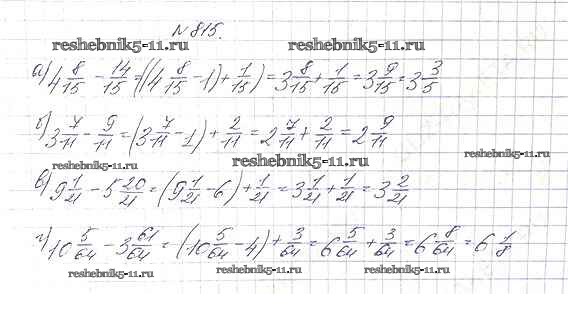 №815.
reshebnik5-11.ru reshebnik5-11.ru
а) 4 8/15 - 14/15 = ((4 8/15 - 1) + 1/15) = 3 8/15 + 1/15 = 3 9/15 = 3 3/5
б) 3 7/11 - 9/11 = (3 7/11 - 1) + 2/11 = 2 7/11 + 2/11 = 2 9/11
reshebnik5-11.ru reshebnik5-11.ru reshebnik5-11.ru
в) 9 1/21 - 5 20/21 = (9 1/21 - 6) + 1/21 = 3 1/21 + 1/21 = 3 2/21
г) 10 5/64 - 3 61/64 = (10 5/64 - 4) + 3/64 = 6 5/64 + 3/64 = 6 8/64 = 6 1/8
reshebnik5-11.ru reshebnik5-11.ru reshebnik5-11.ru